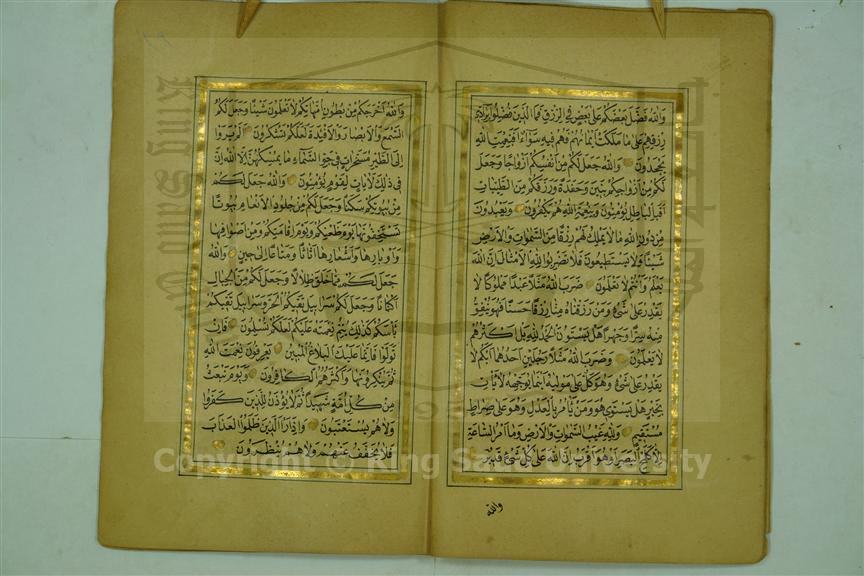 والله فضل بعضكم على بعض في الرزق فما الذين فضلوا برادي
رزقهم على ما ملكت ايمانهم فهم فيه سواء افبنعمت الله
يجحدون والله جعل لكم من انفسكم ازواجا وجعل
لكم من ازواجكم بنين وحفدة ورزقكم من الطيبات
افبالباطل يؤمنون وبنعمة الله هم يكفرون ويعبدون
من دون الله ما لا يملك لهم رزقا من السموات والارض
شيئا ولا يستطيعون فلا تضربوا لله الامثال ان الله
يعلم وانتم لا تعلمون ضرب الله مثلا عبدا مملوكا لا
يقدر على شئ ومن رزقناه منا رزقا حسنا فهو ينفق
منه سرا وجهرا هل يستوون الحمد لله بل اكثرهم
لا يعلمون وضرب الله مثلا رجلين احدهما ابكم لا
يقدر على شئ وهو كل على موليه اينما يوجهه لا يأت
بخير هل يستوي هو ومن يأمر بالعدل وهو على صراط
مستقيم ولله غيب السموات والارض وما امر الساعة
الا كلمح البصر او هو اقرب ان الله على كل شئ قدير
والله
والله اخرجكم من بطون امهاتكم لا تعلمون شيئا وجعل لكم
السمع والابصار والافئدة لعلكم تشكرون الم يروا
الى الطير مسخرات في جو السماء ما يمسكهن الا الله ان
في ذلك لآيات لقوم يؤمنون والله جعل لكم
من بيوتكم سكنا وجعل لكم من جلود الانعام بيوتا
تستخفونها يوم ظعنكم ويوم اقامتكم ومن اصوافها
واوبارها واشعارها اثاثا ومتاعا الى حين والله
جعل لكم مما خلق ظلالا وجعل لكم من الجبال
اكنانا وجعل لكم سرابيل تقيكم الحر وسرابيل تقيكم
بأسكم كذلك يتم نعمته عليكم لعلكم تسلمون فان
تولوا فانما عليك البلاغ المبين يعرفون نعمت الله
ثم ينكرونها واكثرهم الكافرون ويوم نبعث
من كل امة شهيدا ثم لا يؤذن للذين كفروا
ولا هم يستعتبون واذا را الذين ظلموا العذاب
فلا يخفف عنهم ولا هم ينظرون
Copyright © King Saud University